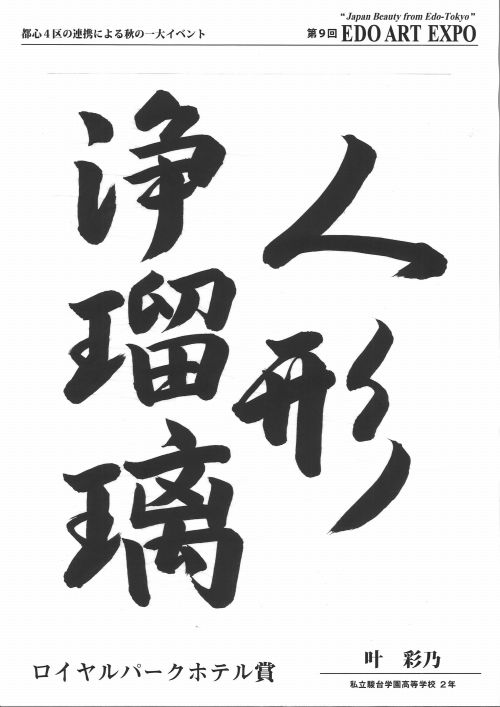 都心４区の連携による秋の一大イベント
"Japan Beauty from Edo-Tokyo"
第９回 EDO ART EXPO
人形
浄瑠璃
ロイヤルパークホテル賞
叶 彩乃
私立駿台学園高等学校 2年